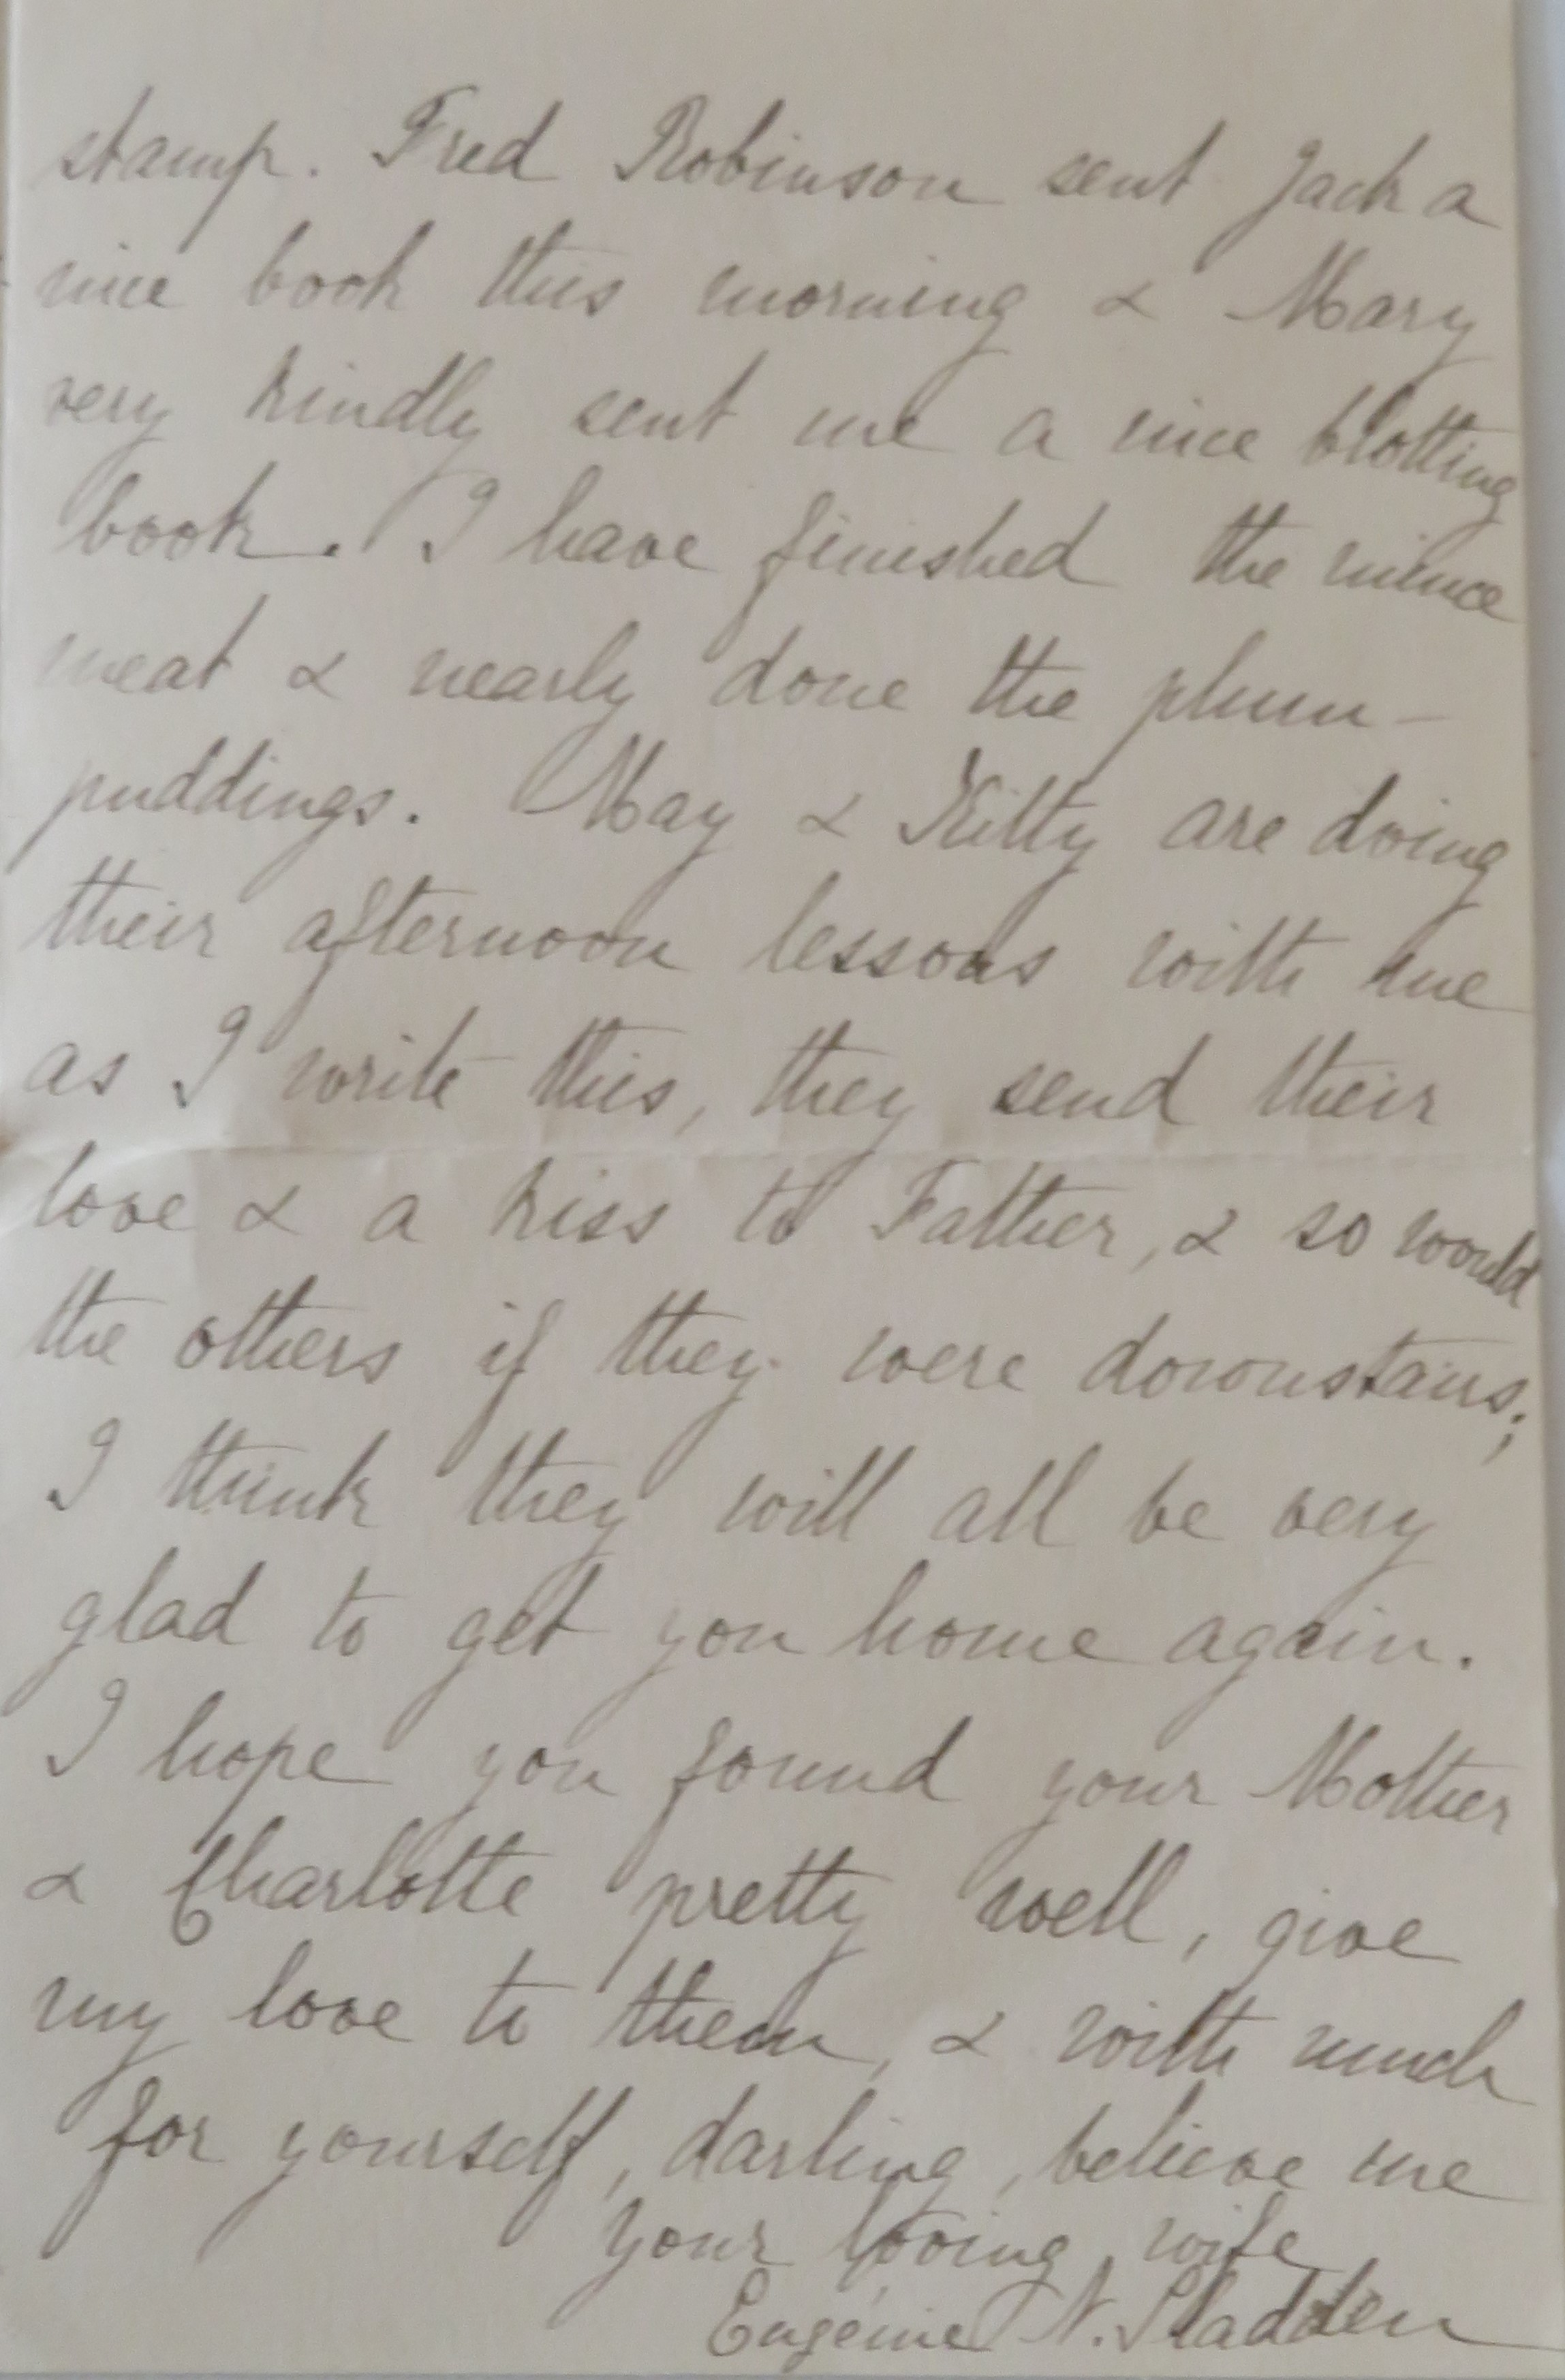 stamp. Fred Robinson sent Jack a
nice book this morning & Mary
very kindly sent me a nice blotting
book. I have finished the mince
meat & nearly done the plum-
puddings. May & Kitty are doing
their afternoon lessons with me
as I write this, they send their
love & a kiss to Father, & so would
the others if they were downstairs;
I think they will all be very
glad to get you home again.
I hope you found your Mother
& Charlotte pretty well, give
my love to them, & with much
for yourself, darling, believe me
your loving wife
Eugénie N. Sladden